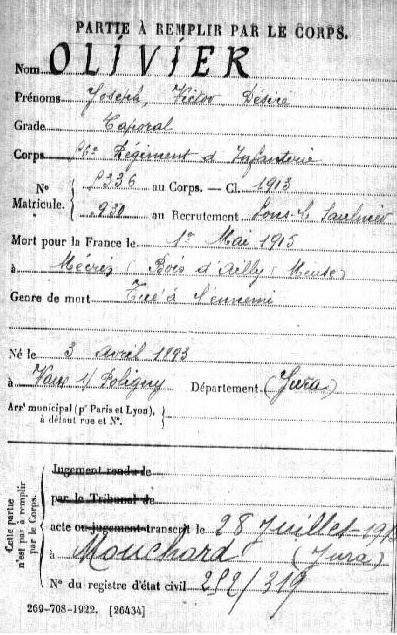 PARTIE À REMPLIR PAR LE CORPS.
Nom OLIVIER
Prénoms Joseph, Victor Désiré
Grade Caporal
Corps Régiment d'Infanterie
N° 5336 au Corps. — Cl. 1913
Matricule. 930 au Recrutement Lons-le-Saulnier
Mort pour la France le 1er Mai 1915
à (Bois d'Ailly) (Meuse)
Genre de mort Tué à l'ennemi
Né le 3 avril 1893
à Vaux s/ Poligny Département (Jura)
Arrt municipal (pr Paris et Lyon),
à défaut rue et N°.
Cette partie
n'est pas à remplir
par le Corps.
Jugement rendu le
par le Tribunal de
acte ou jugement transcrit le 28 Juillet 191
à Mouchard (Jura)
N° du registre d'état civil 292/319
269-708-1922. [26434]